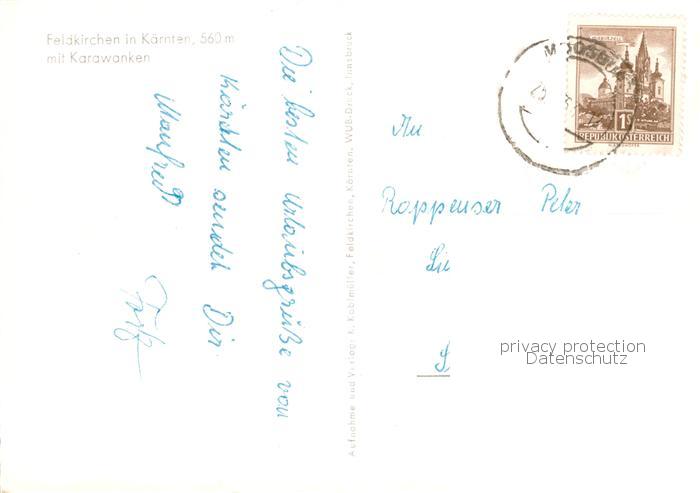 Feldkirchen in Kärnten, 560 m
mit Karawanken
Die besten Urlaubsgrüße von
Kärnten sendet Dir
Manfred
Aufnahme und Verlag: R. Koblmüller, Feldkirchen, Kärnten, WUB-Druck, Innsbruck
1S
REPUBLIK ÖSTERREICH
An
Rappenser Peter
privacy protection
Datenschutz